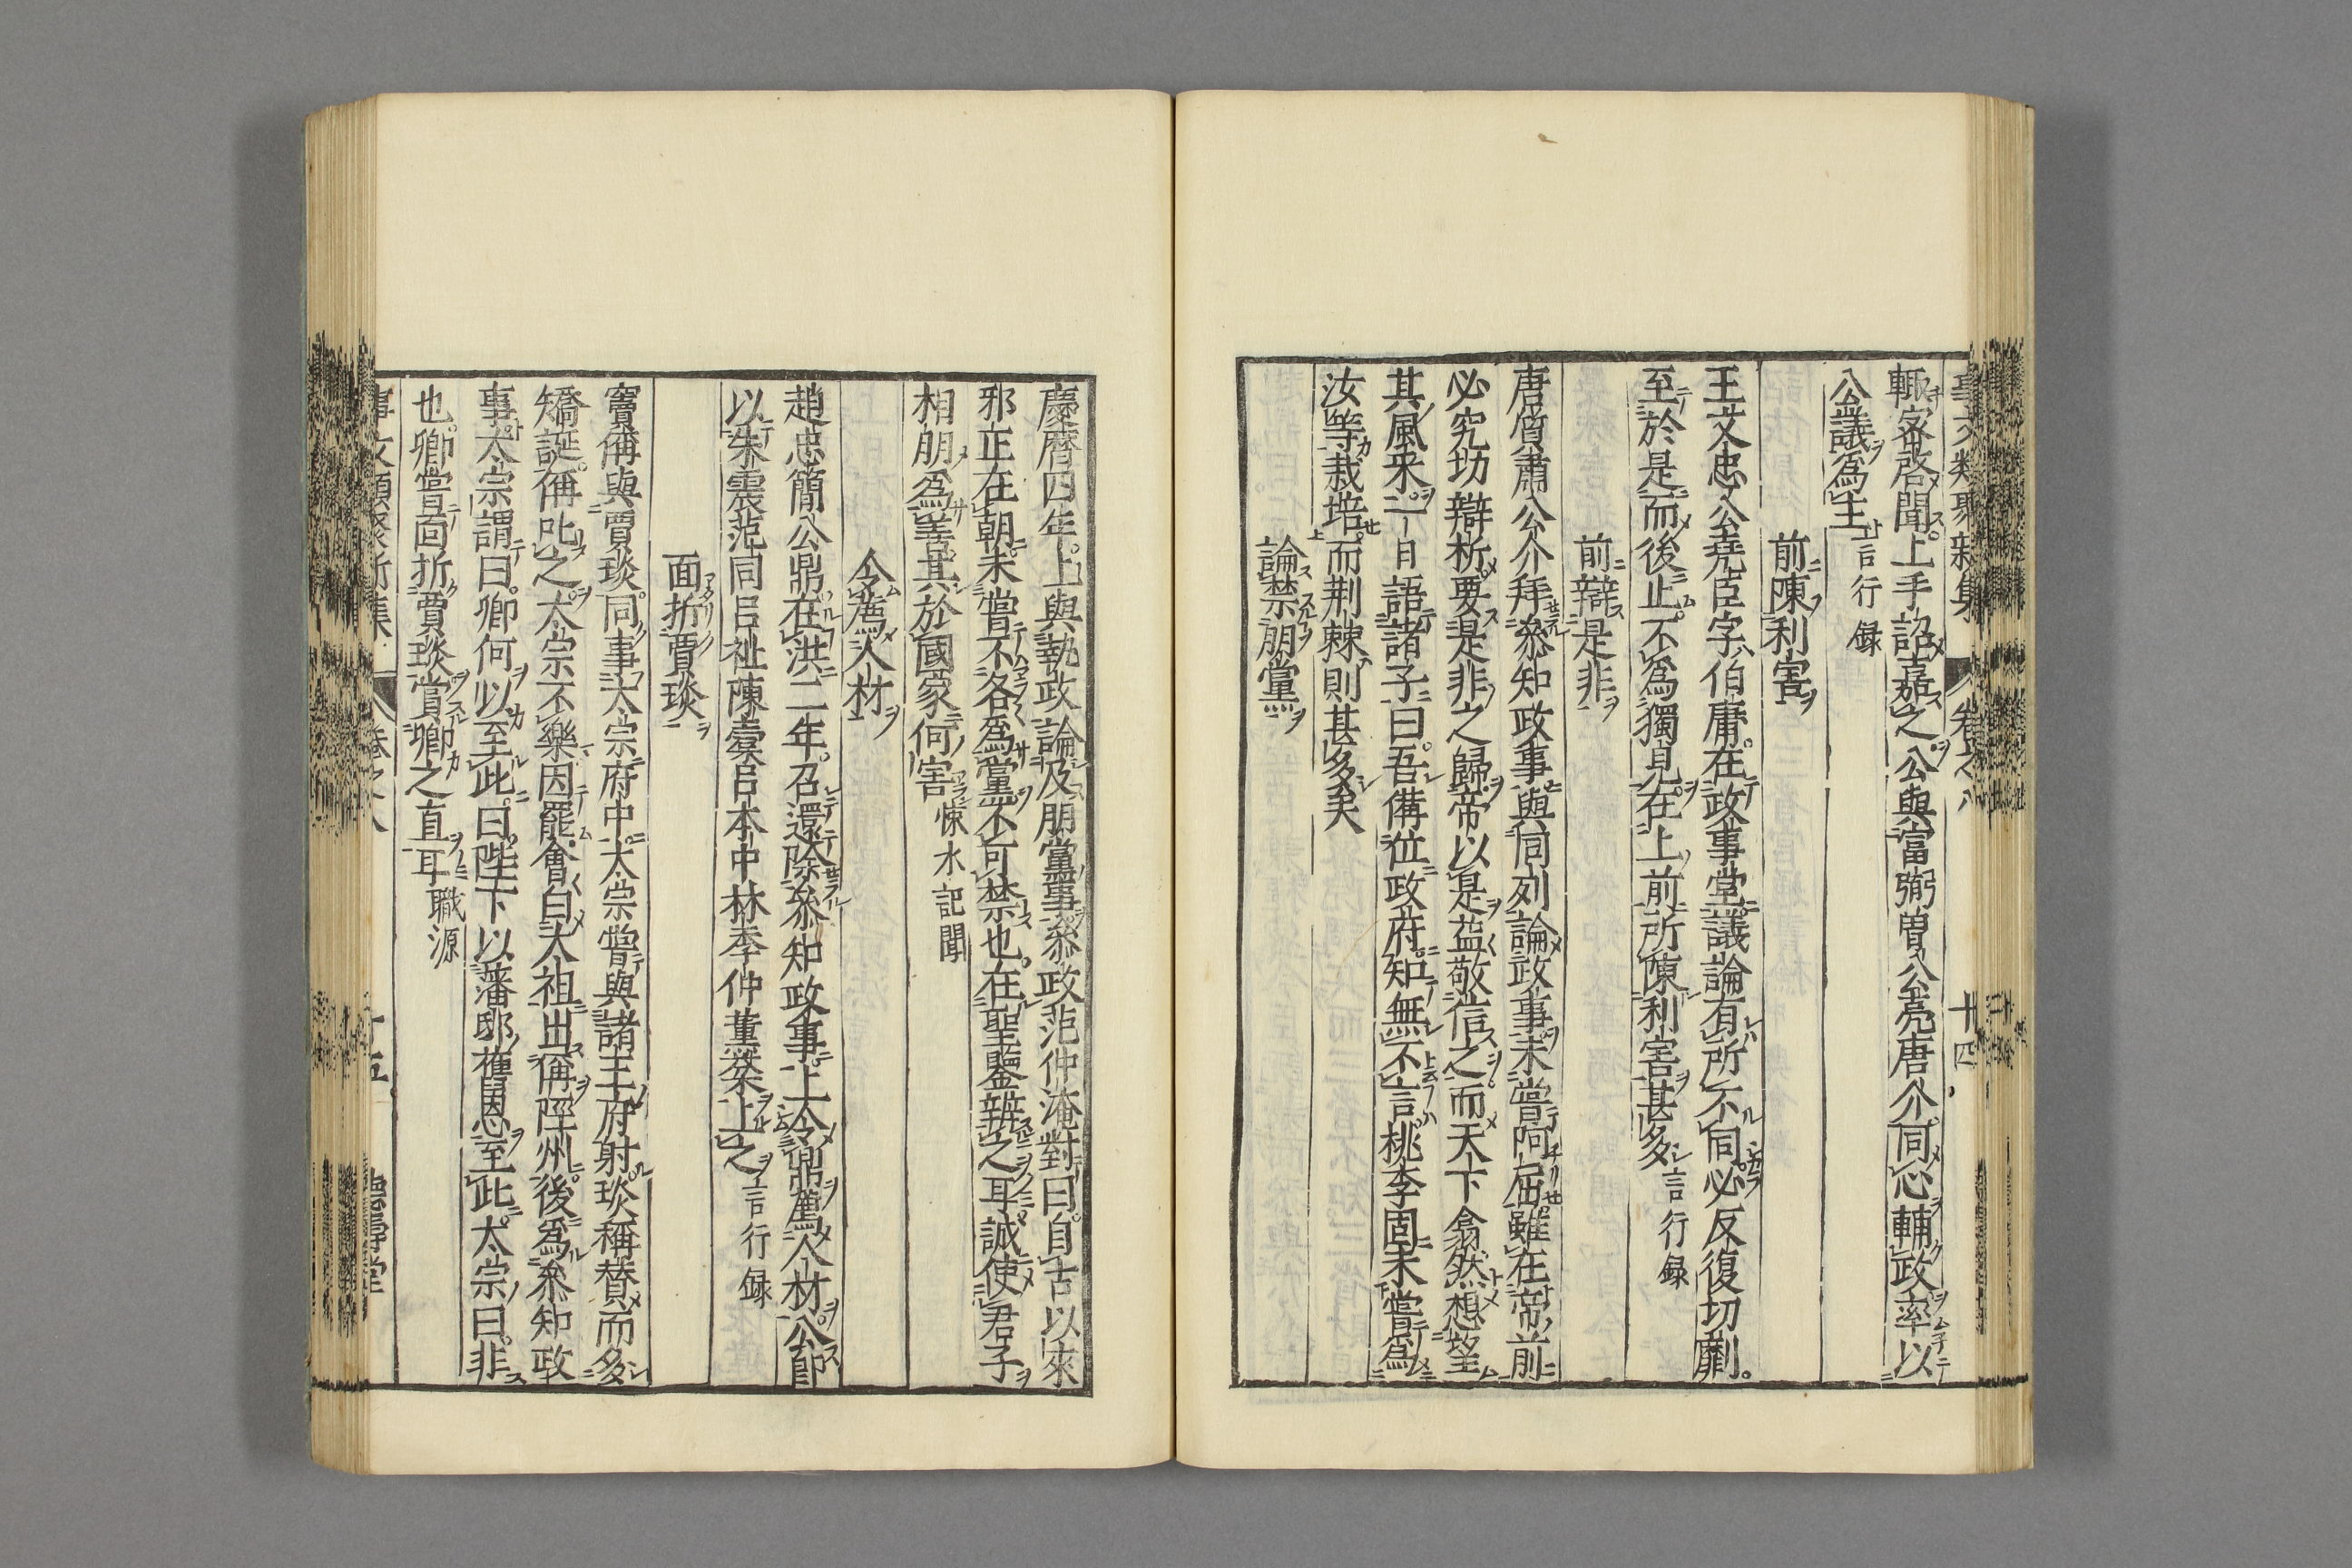 事文類聚新集 卷之八 十四
輙密啓聞上手詔嘉之公與富弼曽公亮唐介同心輔政率以
公議爲主言行録
前陳利害
王文忠公堯臣字伯庸在政事堂議論有所不同必反復切劘
至於是而後止不爲獨見在上前所陳利害甚多言行録
前辯是非
唐質肅公介拜叅知政事與同列論政事未嘗阿屈雖在帝前
必究切辯析要是非之歸帝以是益敬信之而天下翕然想望
其風采一日語諸子曰吾備位政府知無不言桃李固未嘗爲
汝等栽培而荆棘則甚多矣
論禁朋黨
慶曆四年上與執政論及朋黨事叅政范仲淹對曰自古以來
邪正在朝未嘗不各爲黨不可禁也在聖鑒辨之耳誠使君子
相朋爲善其於國家何害悚水記聞
令薦人材
趙忠簡公鼎在洪二年召還除叅知政事上令鼎薦人材公即
以朱震范同呂祉陳橐呂本中林季仲董棻上之言行録
面折賈琰
竇偁與賈琰同事太宗府中太宗嘗與諸王府射琰稱賛而多
矯誕偁叱之太宗不樂因罷會白太祖出偁陘州後爲叅知政
事太宗謂曰卿何以至此曰陛下以藩邸舊恩至此太宗曰非
也卿嘗面折賈琰賞卿之直耳職源
事文類聚新集 卷之八 十五 德壽堂